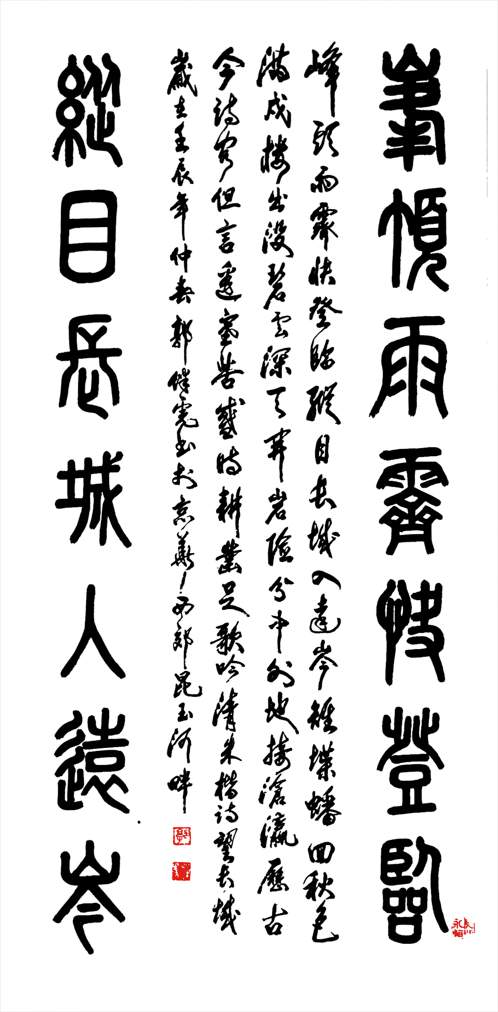 峯頂雨霽快登臨
峰頭雨霽快登臨縱目長城入遠岑雉堞蟠回秋色
滿戍樓出沒碧雲深天開岩險分中外地接滄瀛歷古
今詩客但言邊塞苦盛時耕鑿足歌吟清朱楷詩望長城
歲在壬辰年仲春郭虎書於京華西郊昆玉河畔
縱目長城入遠岑